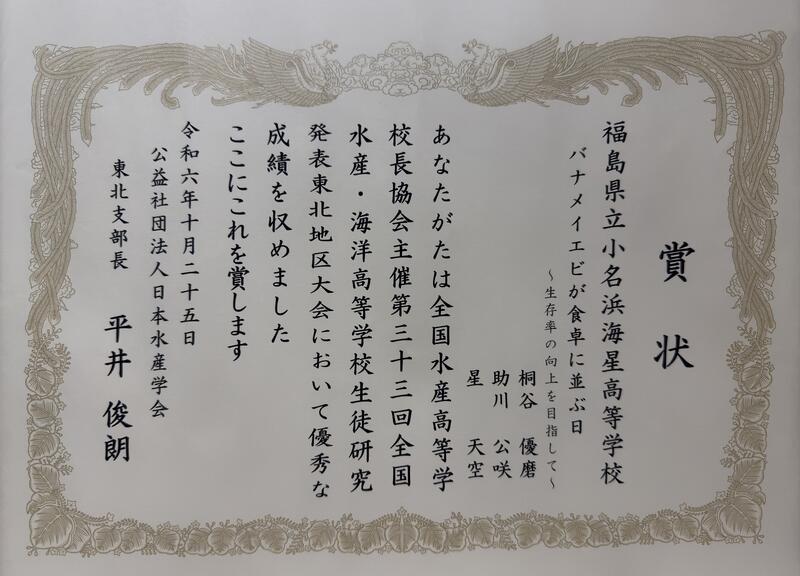 賞状
福島県立小名浜海星高等学校
バナメイエビが食卓に並ぶ日
～生存率の向上を目指して～
桐谷 優磨
助川 公咲
星 天空
あなたがたは全国水産高等学
校長協会主催第三十三回全国
水産・海洋高等学校生徒研究
発表東北地区大会において優秀な
成績を収めました
ここにこれを賞します
令和六年十月二十五日
公益社団法人日本水産学会
東北支部長 平井 俊朗